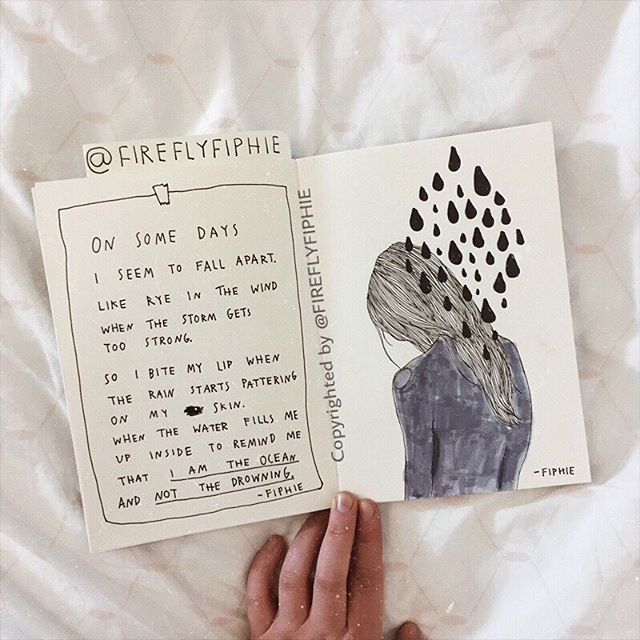 @FIREFLYFIPHIE
ON SOME DAYS
I SEEM TO FALL APART.
LIKE RYE IN THE WIND
WHEN THE STORM GETS
TOO STRONG.
SO I BITE MY LIP WHEN
THE RAIN STARTS PATTERING
ON MY SKIN.
WHEN THE WATER FILLS ME
UP INSIDE TO REMIND ME
THAT I AM THE OCEAN
AND NOT THE DROWNING.
-FIPHIE
Copyrighted by @FIREFLYFIPHIE
-FIPHIE